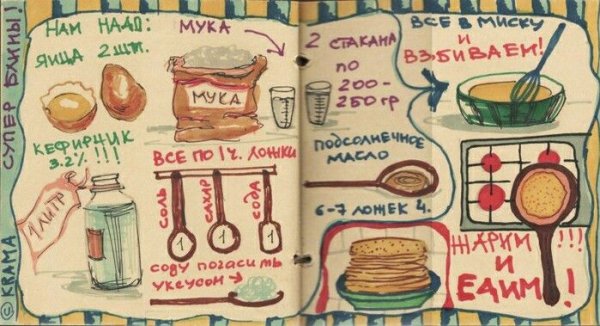 СУПЕР БЛИНЫ!
© KRAMA
НАМ НАДО:
ЯЙЦА 2 ШТ.
МУКА
МУКА
2 СТАКАНА
ПО
200-
250 ГР
КЕФИРЧИК
3.2% !!!
1 ЛИТР
ВСЕ ПО 1 Ч. ЛОЖКИ
СОЛЬ
САХАР
СОДА
1
1
1
СОДУ ПОГАСИТЬ
УКСУСОМ
ПОДСОЛНЕЧНОЕ
МАСЛО
6-7 ЛОЖЕК Ч.
ВСЕ В МИСКУ
И
ВЗБИВАЕМ!
ЖАРИМ !!!
И
ЕДИМ!